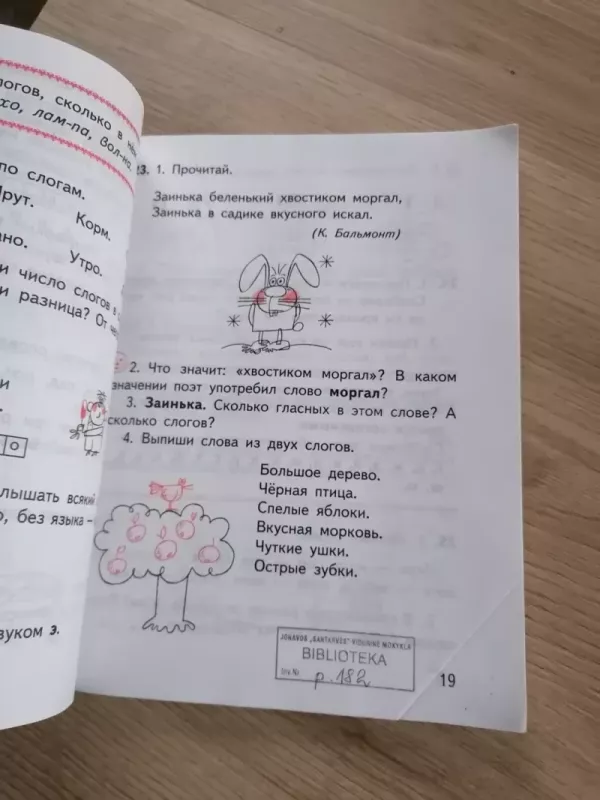 логов, сколько в нём
хо, лам-па, вол-на.
по слогам.
Прут. Корм.
ано. Утро.
и число слогов в
и разница? От
и
О
лышать всякий
о, без языка –
вуком з.
23. 1. Прочитай.
Заинька беленький хвостиком моргал,
Заинька в садике вкусного искал.
(К. Бальмонт)
2. Что значит: «хвостиком моргал»? В каком
значении поэт употребил слово моргал?
3. Заинька. Сколько гласных в этом слове? А
сколько слогов?
4. Выпиши слова из двух слогов.
Большое дерево.
Чёрная птица.
Спелые яблоки.
Вкусная морковь.
Чуткие ушки.
Острые зубки.
JONAVOS „SANTARVĖS" VIDURINĖ MOKYKLA
BIBLIOTEKA
Inv. Nr. p. 182
19